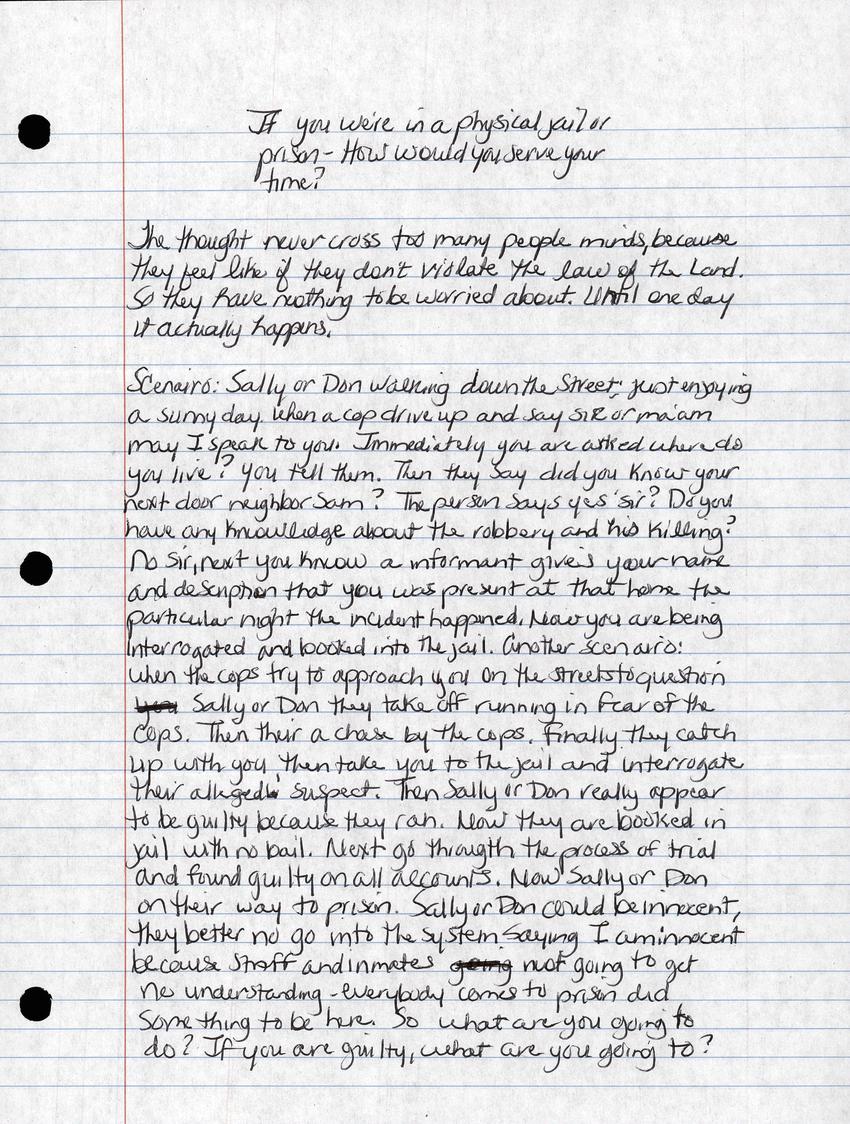 If you were in a physical jail or
prison - How would you serve your
time?
The thought never cross too many people minds, because
they feel like if they don't violate the law of the Land.
So they have nothing to be worried about. Until one day
it actually happens.
Scenairo: Sally or Don walking down the Street, just enjoying
a sunny day, when a cop drive up and say sir or ma'am
may I speak to you. Immediately you are asked where do
you live? You tell them. Then they say did you know your
next door neighbor Sam? The person says yes sir? Do you
have any knowledge about the robbery and his killing?
No sir, next you know a informant gives your name
and description that you was present at that home the
particular night the incident happened. Now you are being
interrogated and booked into the jail. Another scenairo:
when the cops try to approach you on the streets to question
you Sally or Don they take off running in fear of the
cops. Then their a chase by the cops. Finally they catch
up with you, then take you to the jail and interrogate
their alleged suspect. Then Sally or Don really appear
to be guilty because they ran. Now they are booked in
jail with no bail. Next go througth the process of trial
and found guilty on all accounts. Now Sally or Don
on their way to prison. Sally or Don could be innocent,
they better no go into the system saying I am innocent
because staff and inmates going not going to get
no understanding - everybody comes to prison did
something to be here. So what are you going to
do? If you are guilty, what are you going to?